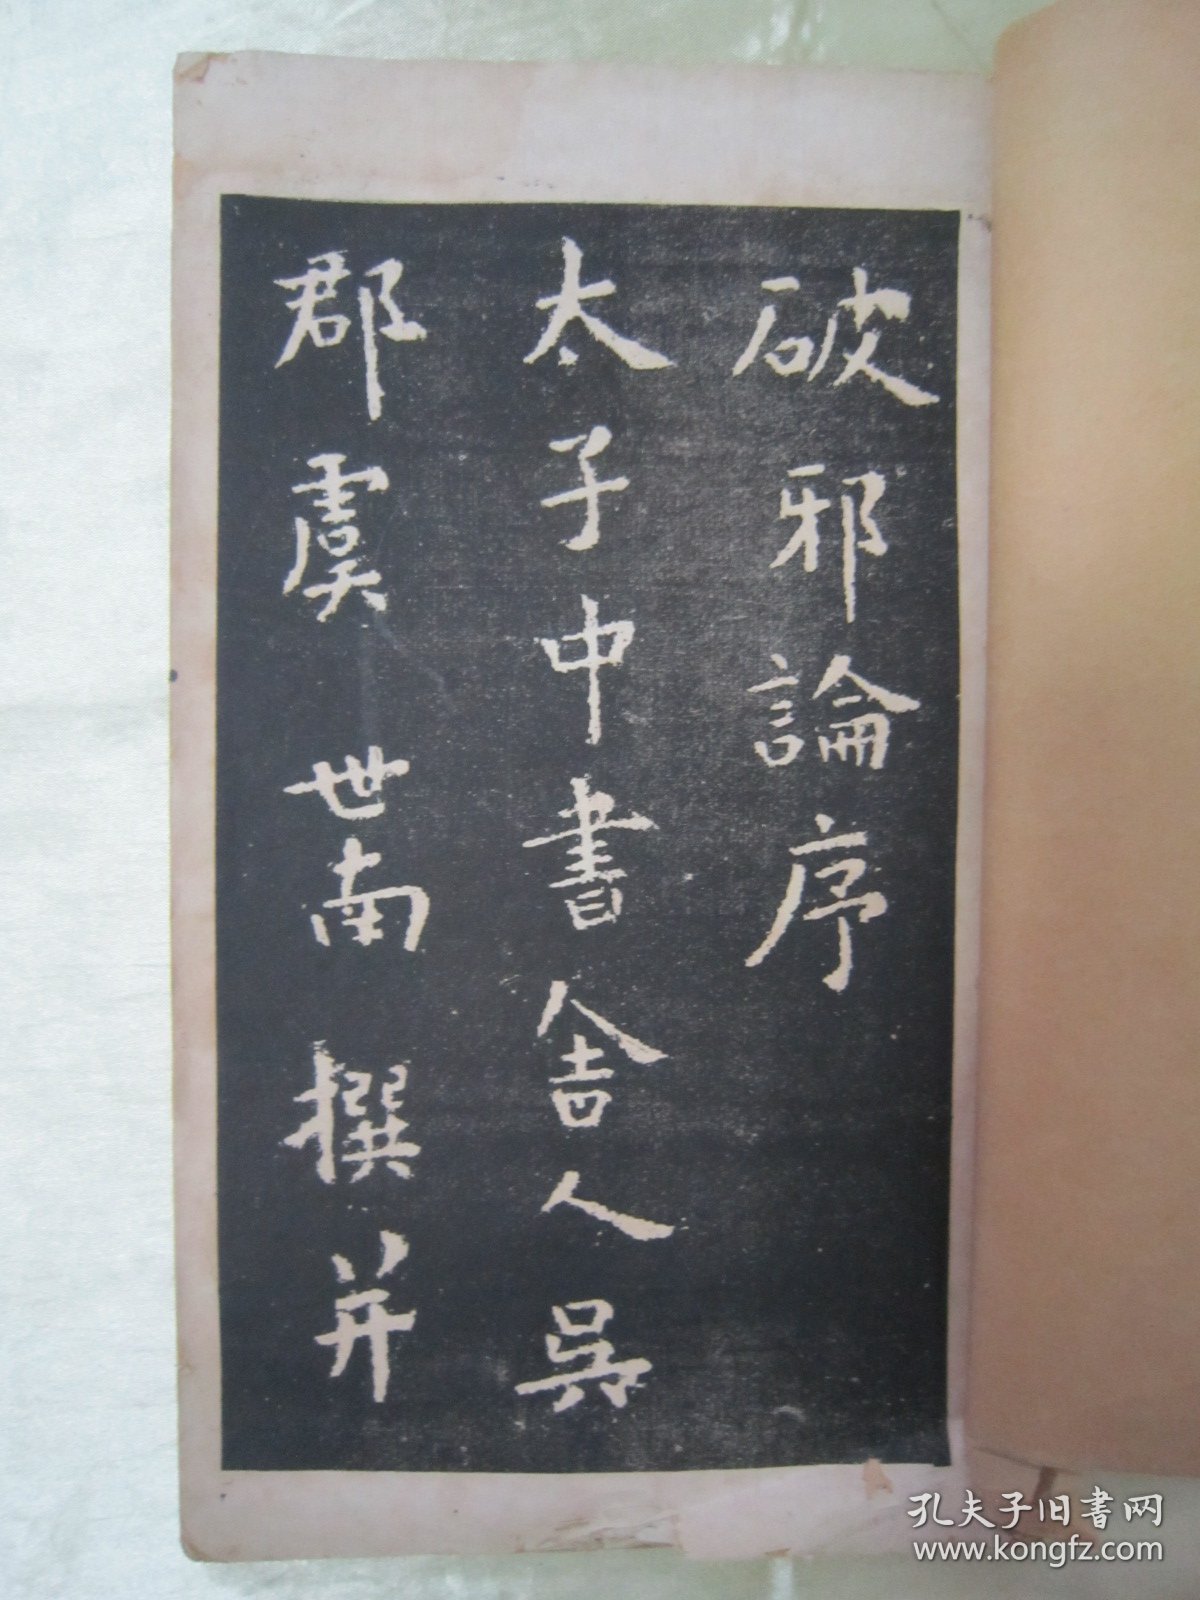 破邪論序
太子中書舍人吳
郡虞世南撰并
孔夫子旧書网
www.kongfz.com